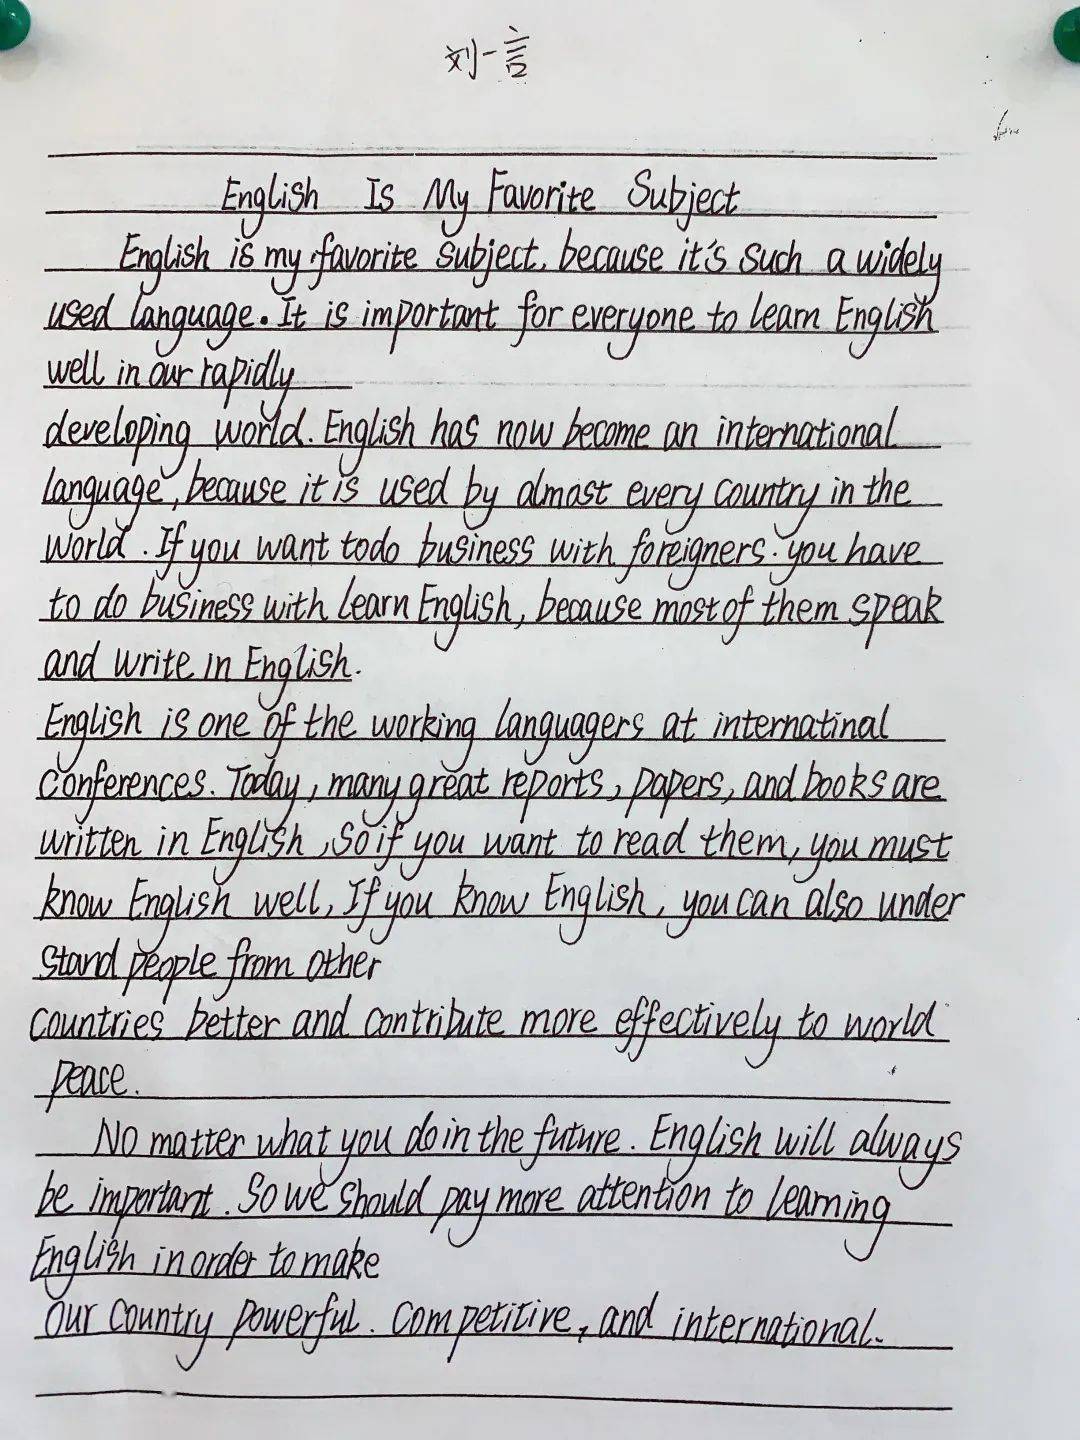 刘一言
English Is My Favorite Subject
English is my favorite subject, because it's such a widely
used language. It is important for everyone to learn English
well in our rapidly
developing world. English has now become an international
language, because it is used by almost every country in the
world. If you want todo business with foreigners. you have
to do business with learn English, because most of them speak
and write in English.
English is one of the working languagers at internatinal
conferences. Today, many great reports, papers, and books are
written in English, So if you want to read them, you must
know English well, If you know English, you can also under
stand people from other
countries better and contribute more effectively to world
peace.
No matter what you do in the future. English will always
be important. So we should pay more attention to learning
English in order to make
our country powerful. competitive, and international.